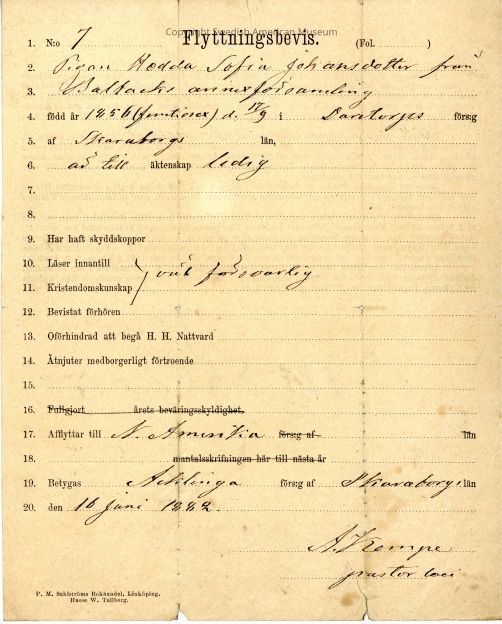 Copyright Swedish American Museum
1. N:o 7 Flyttningsbevis. (Fol. )
2. Pigan Hedda Sofia Johansdotter från
3. Baltacks annexförsamling
4. född år 1856 (femtiosex) d. 17/9 i Daretorps förs:g
5. af Skaraborgs län,
6. är till äktenskap ledig
7.
8.
9. Har haft skyddskoppor
10. Läser innantill
11. Kristendomskunskap försvarlig
12. Bevistat förhören
13. Oförhindrad att begå H. H. Nattvard
14. Åtnjuter medborgerligt förtroende
15.
16. Fullgjort årets beväringsskyldighet.
17. Afflyttar till N. Amerika förs:g af län
18. mantalsskrifningen här till nästa år
19. Betygas Acklinga förs:g af Skaraborgs län
20. den 16 juni 1882.
A. Kempe
pastor loci
P. M. Sahlströms Bokhandel, Linköping.
Hasse W. Tullberg.